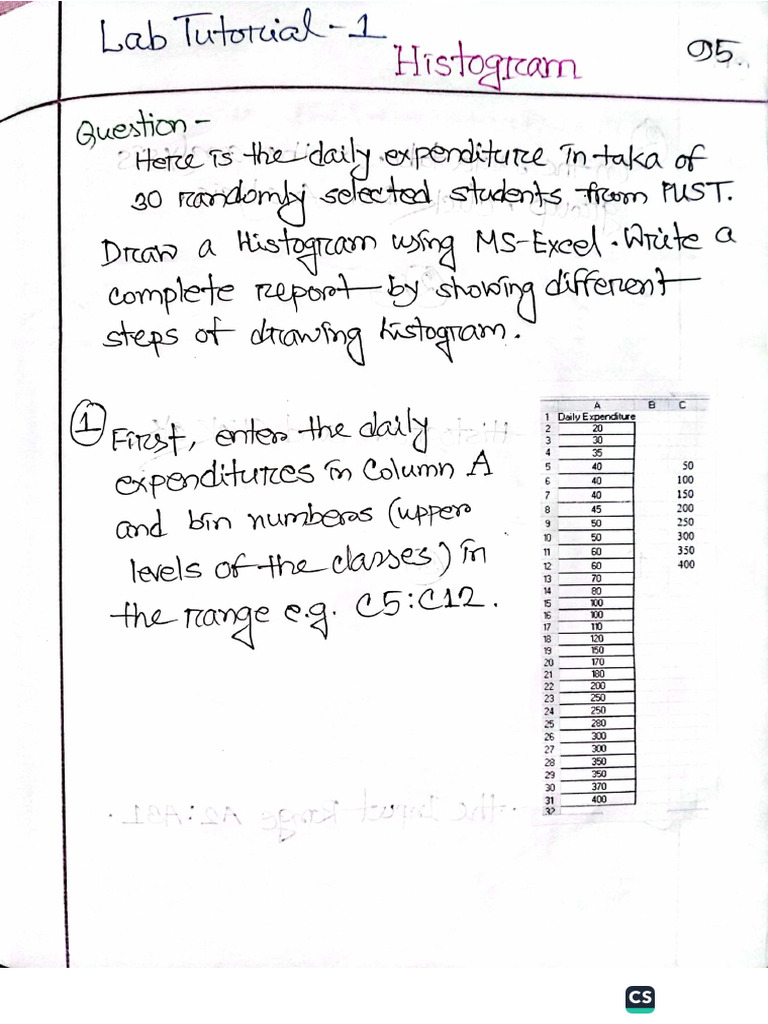 Lab Tutorial-1
Histogram
05
Question-
Here is the daily expenditure in taka of
30 randomly selected students from PUST.
Draw a Histogram using MS-Excel. Write a
complete report by showing different
steps of drawing histogram.
1 First, enter the daily
expenditures in Column A
and bin numbers (upper
levels of the classes) in
the range e.g. C5:C12.
A B C
1 Daily Expenditure
2 20
3 30
4 35
5 40 50
6 40 100
7 40 150
8 45 200
9 50 250
10 50 300
11 60 350
12 60 400
13 70
14 80
15 100
16 100
17 110
18 120
19 150
20 170
21 180
22 200
23 250
24 250
25 280
26 300
27 300
28 350
29 350
30 370
31 400
32
the Input Range A2:A31.
CS